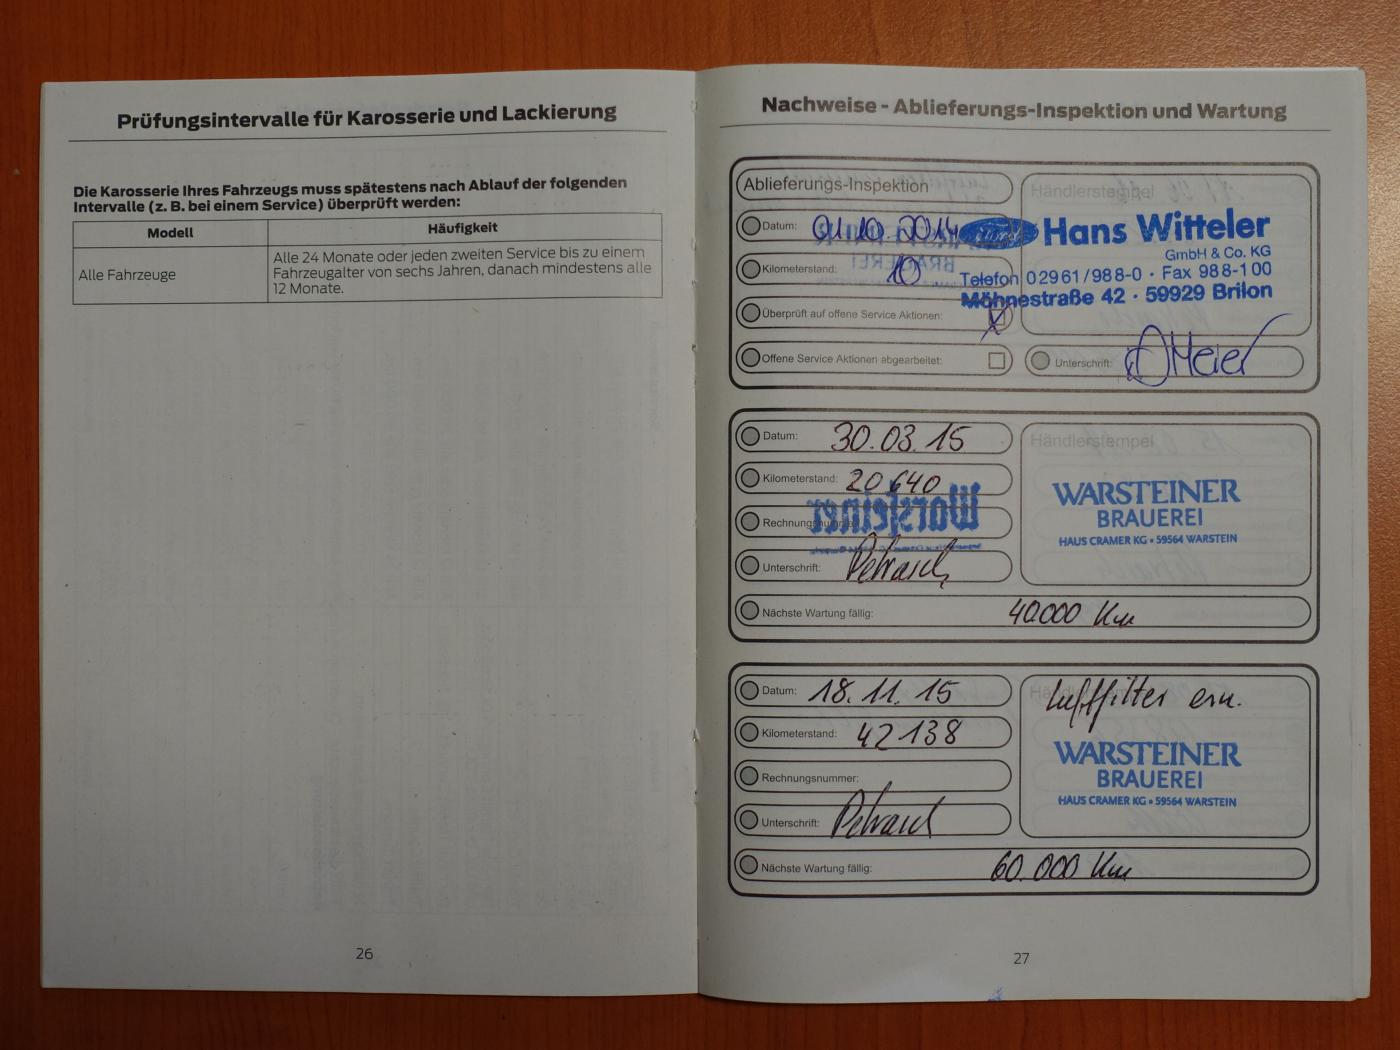 Prüfungsintervalle für Karosserie und Lackierung
Die Karosserie Ihres Fahrzeugs muss spätestens nach Ablauf der folgenden
Intervalle (z. B. bei einem Service) überprüft werden:
Modell
Häufigkeit
Alle Fahrzeuge
Alle 24 Monate oder jeden zweiten Service bis zu einem
Fahrzeugalter von sechs Jahren, danach mindestens alle
12 Monate.
26
Nachweise - Ablieferungs-Inspektion und Wartung
Ablieferungs-Inspektion
Datum: 01.10.2014
Kilometerstand: 10
Überprüft auf offene Service Aktionen:
Offene Service Aktionen abgearbeitet:
Händlerstempel
Hans Witteler
GmbH & Co. KG
Telefon 02961/988-0 · Fax 988-100
Möhnestraße 42 · 59929 Brilon
Unterschrift: Meier
Datum: 30.03.15
Kilometerstand: 20640
Rechnungsnummer:
Warsteiner
Unterschrift: Petrasch
Händlerstempel
WARSTEINER
BRAUEREI
HAUS CRAMER KG • 59564 WARSTEIN
Nächste Wartung fällig: 40000 Km
Datum: 18.11.15
Kilometerstand: 42138
Rechnungsnummer:
Unterschrift: Petrasch
Luftfilter ern.
WARSTEINER
BRAUEREI
HAUS CRAMER KG • 59564 WARSTEIN
Nächste Wartung fällig: 60.000 Km
27